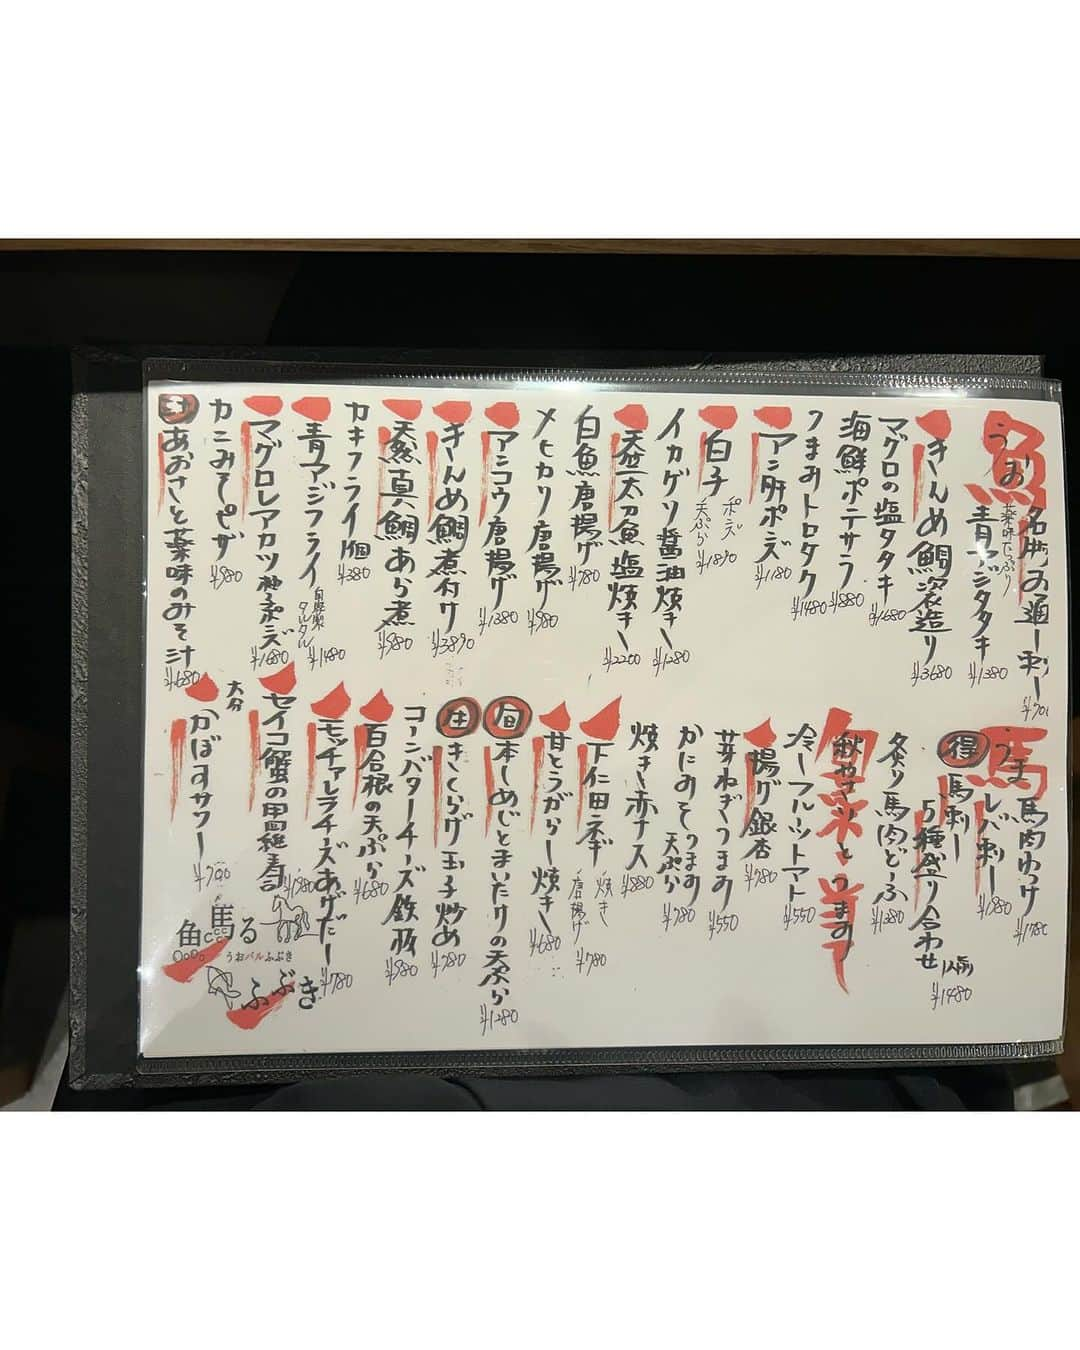 魚
うお
名物お通し刺し ¥780
薬味たっぷり
青アジタタキ ¥1380
きんめ鯛姿造り ¥3680
マグロの塩タタキ ¥1680
海鮮ポテサラ ¥880
つまみトロタク ¥1480
アン肝ポンズ ¥1180
白子 ポンズ 天ぷら ¥1890
イカゲソ醤油焼き ¥1280
天然太刀魚塩焼き ¥2200
白魚唐揚げ ¥780
メヒカリ唐揚げ ¥980
アンコウ唐揚げ ¥1380
きんめ鯛煮付け ¥3890
天然真鯛あら煮 ¥980
カキフライ1個 ¥380
青アジフライ 自家製タルタル ¥1480
マグロレアカツ ポンズ ¥1680
カニみそピザ ¥980
あおさと薬味のみそ汁 ¥680
馬
うま
馬肉ゆっけ ¥1780
レバ刺し ¥1280
得 馬刺し 5種盛り合わせ 1人前 ¥1480
炙り馬肉どーふ ¥1380
秋ヤサイとつまみ
冷しフルーツトマト ¥550
揚げ銀杏 ¥780
芽ねぎつまみ ¥550
かにみそつまみ 天ぷら ¥780
焼き赤ナス ¥880
下仁田ネギ 焼き 唐揚げ ¥780
甘とうがらし焼き ¥680
旬 本しめじとまいたけの天ぷら ¥1280
きくらげ玉子炒め ¥780
コーンバターチーズ鉄板 ¥980
百合根の天ぷら ¥680
モッチァレラチーズあげだし ¥780
セイコ蟹の甲羅寿司 ¥1980
大分
かぼすサワー ¥790
魚馬る
うおバルふぶき
ふぶき